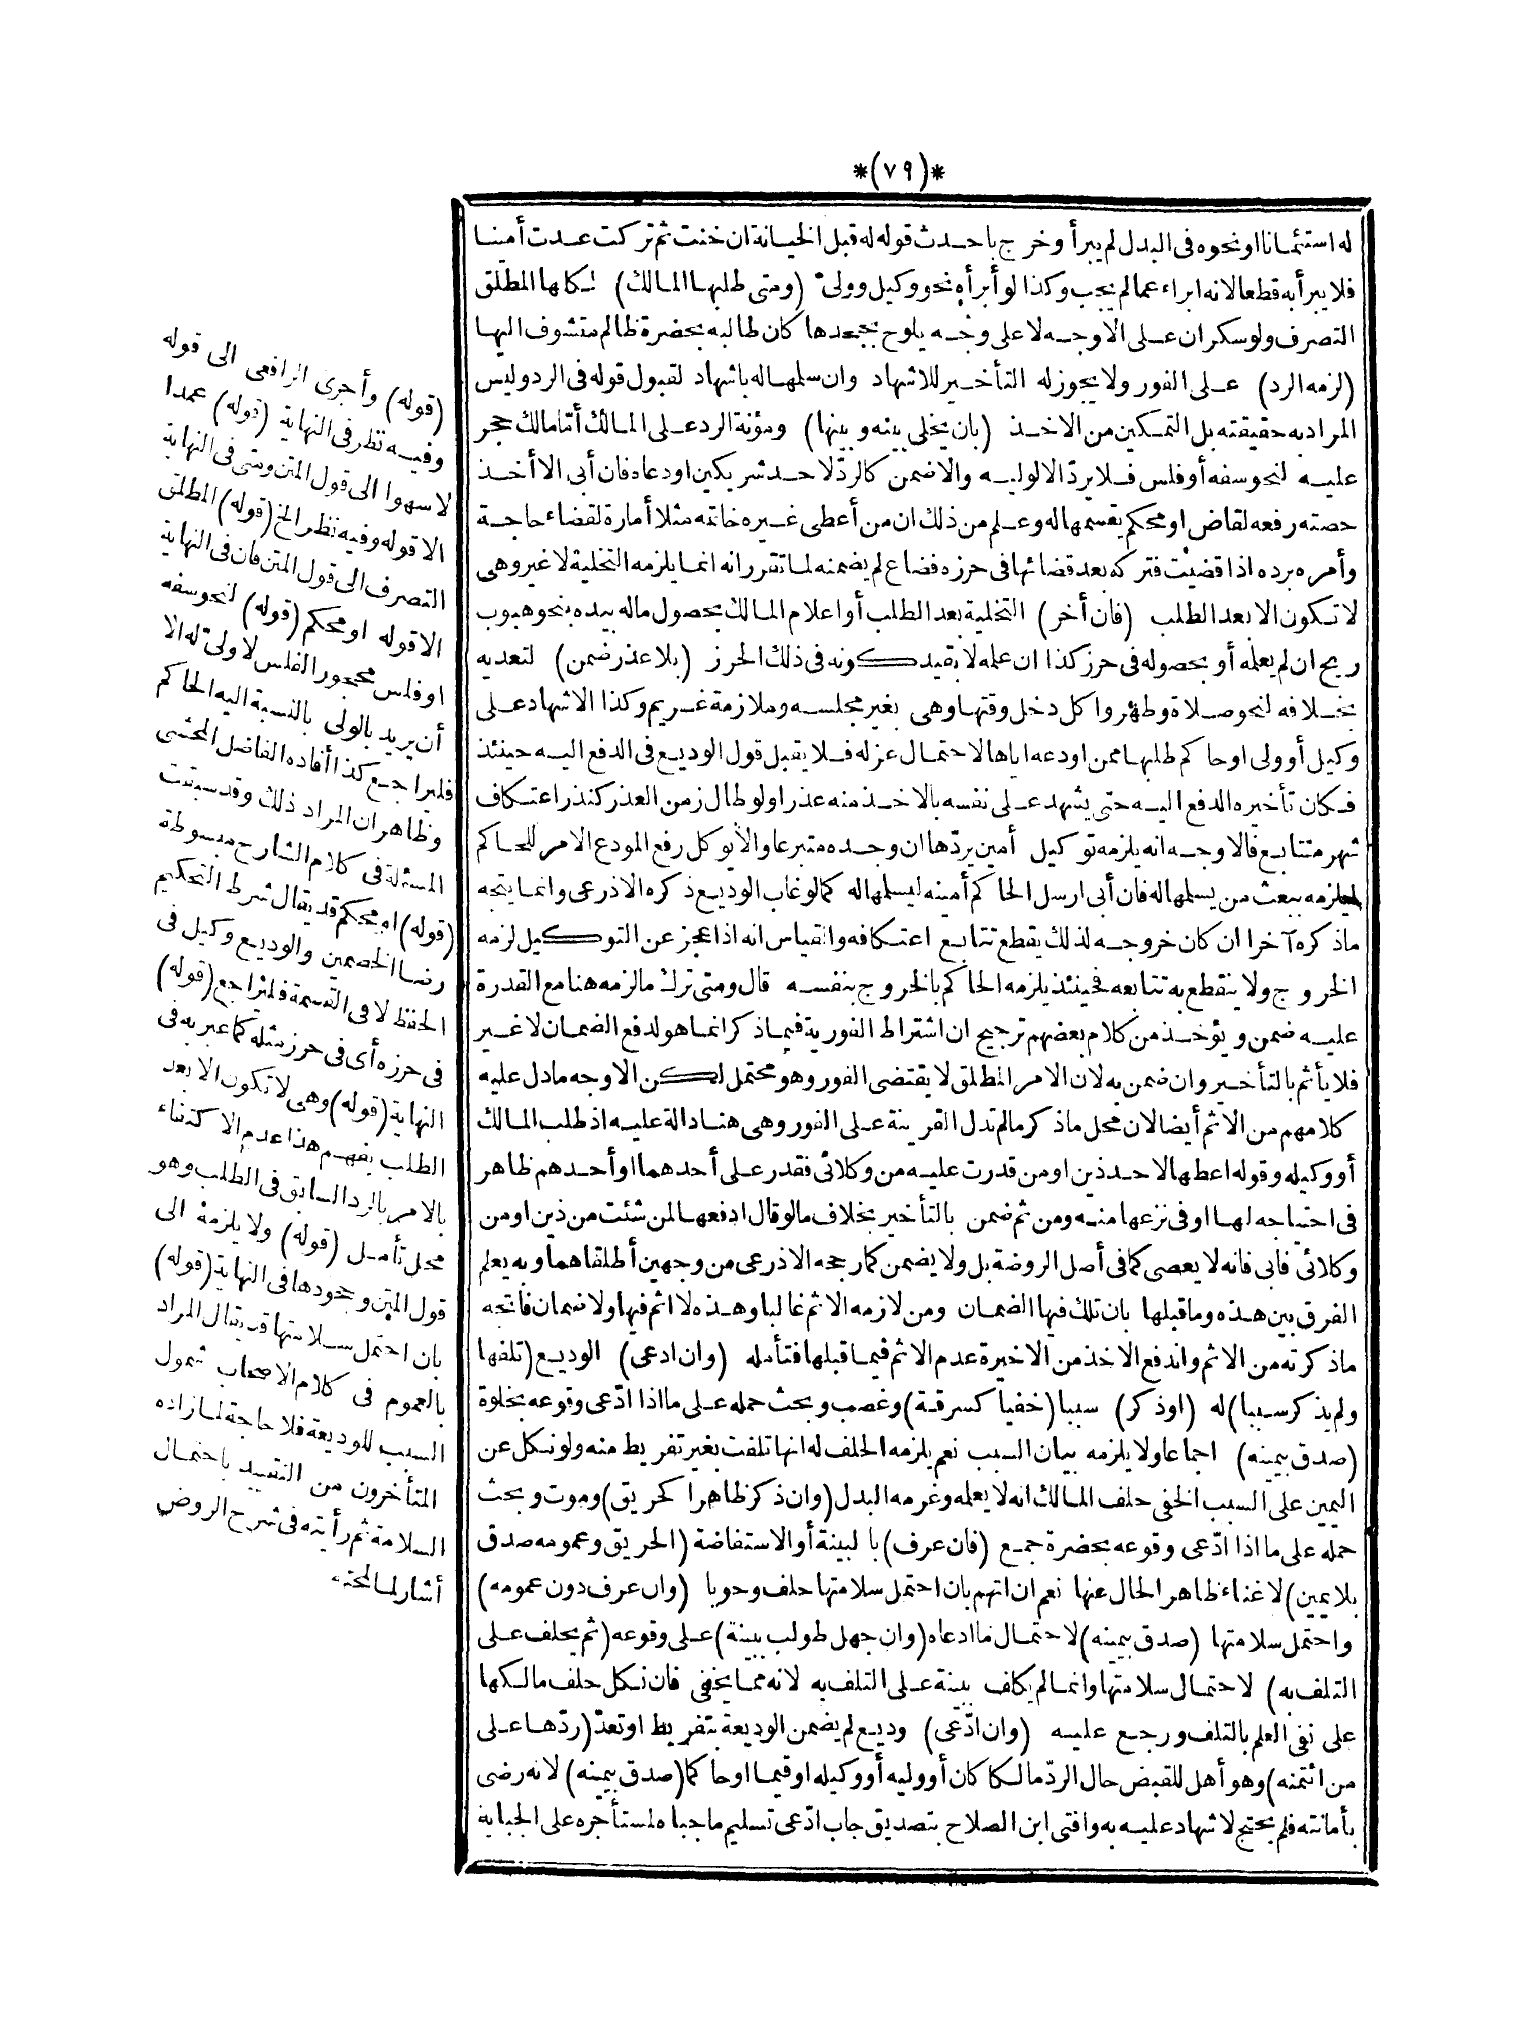 *(٧٩)*
له استئمانا او نحوه فى البدل لم يبرأ وخرج باحدث قوله له قبل الخيانة ان خنت ثم تركت عدت أمينا
فلا يبرأ به قطعا لانه ابراء عما لم يجب وكذا لو أبرأه نحو وكيل وولىّ (ومتى طلبها المالك) لكلها المطلق
التصرف ولو سكران على الاوجه لا على وجه يلوح بجحدها كان طالبه بحضرة ظالم متشوف اليها
(لزمه الرد) على الفور ولا يجوز له التأخير للاشهاد وان سلمها له باشهاد لقبول قوله فى الرد وليس
المراد به حقيقته بل التمكين من الاخذ (بان يخلى بينه وبينها) ومؤنة الرد على المالك أمّا مالك حجر
عليه لنحو سفه أو فلس فلا يردّ الا لوليه والا ضمن كالردّ لاحد شريكين اودعاه فان أبى الا أخذ
حصته رفعه لقاض او محكم يقسمها له وعلم من ذلك ان من أعطى غيره خاتمه مثلا أمارة لقضاء حاجة
وأمره برده اذا قضيت فتركه بعد قضائها فى حرزه فضاع لم يضمنه لما تقرر انه انما يلزمه التخلية لا غير وهى
لا تكون الا بعد الطلب (فان أخر) التخلية بعد الطلب أو اعلام المالك بحصول ماله بيده بنحو هبوب
ريح ان لم يعلمه أو بحصوله فى حرز كذا ان علمه لا بقيد كونه فى ذلك الحرز (بلا عذر ضمن) لتعديه
بخلافه لنحو صلاة وطهر وأكل دخل وقتها وهى بغير مجلسه وملازمة غريم وكذا الاشهاد على
وكيل أو ولى او حاكم طلبها ممن اودعه اياها لاحتمال عزله فلا يقبل قول الوديع فى الدفع اليه حينئذ
فكان تأخيره الدفع اليه حتى يشهد على نفسه بالاخذ منه عذرا ولو طال زمن العذر كنذر اعتكاف
شهر متتابع فالاوجه انه يلزمه توكيل أمين يردّها ان وجده متبرعا والا يوكل رفع المودع الامر للحاكم
ليلزمه ببعث من يسلمها له فان أبى ارسل الحاكم أمينه ليسلمها له كما لو غاب الوديع ذكره الاذرعى وانما يتجه
ماذكره آخرا ان كان خروجه لذلك يقطع تتابع اعتكافه والقياس انه اذا عجز عن التوكيل لزمه
الخروج ولا ينقطع به تتابعه فحينئذ يلزمه الحاكم بالخروج بنفسه قال ومتى ترك ما لزمه هنا مع القدرة
عليه ضمن ويؤخذ من كلام بعضهم ترجيح ان اشتراط الفورية فيما ذكر انما هو لدفع الضمان لا غير
فلا يأثم بالتأخير وان ضمن به لان الامر المطلق لا يقتضى الفور وهو محتمل لكن الاوجه مادل عليه
كلامهم من الاثم أيضا لان محل ماذكر مالم تدل القرينة على الفور وهى هنا دالة عليه اذ طلب المالك
أو وكيله وقوله اعطها لاحد ذين او من قدرت عليه من وكلائى فقدر على أحدهما او أحدهم ظاهر
فى احتياجه لها او فى نزعها منه ومن ثم ضمن بالتأخير بخلاف مالو قال ادفعها لمن شئت من ذين او من
وكلائى فابى فانه لا يعصى كما فى أصل الروضة بل ولا يضمن كما رجحه الاذرعى من وجهين أطلقاهما وبه يعلم
الفرق بين هذه وما قبلها بان تلك فيها الضمان ومن لازمه الاثم غالبا وهذه لا اثم فيها ولا ضمان فاتجه
ماذكرته من الاثم واندفع الاخذ من الاخيرة عدم الاثم فيما قبلها فتأمله (وان ادعى) الوديع (تلفها
ولم يذكر سببا) له (اوذكر) سببا (خفيا كسرقة) وغصب وبحث حمله على ما اذا ادّعى وقوعه بخلوة
(صدق بيمينه) اجماعا ولا يلزمه بيان السبب نعم يلزمه الحلف له انها تلفت بغير تفريط منه ولو نكل عن
اليمين على السبب الخفى حلف المالك انه لا يعلمه وغرمه البدل (وان ذكر ظاهرا كحريق) وموت وبحث
حمله على ما اذا ادّعى وقوعه بحضرة جمع (فان عرف) بالبينة أو الاستفاضة (الحريق وعمومه صدق
بلا يمين) لاغناء ظاهر الحال عنها نعم ان اتهم بان احتمل سلامتها حلف وجوبا (وان عرف دون عمومه)
واحتمل سلامتها (صدق بيمينه) لاحتمال ما ادعاه (وان جهل طولب ببينة) على وقوعه (ثم يحلف على
التلف به) لاحتمال سلامتها وانما لم يكلف بينة على التلف به لانه مما يخفى فان نكل حلف مالكها
على نفى العلم بالتلف ورجع عليه (وان ادّعى) وديع لم يضمن الوديعة بتفريط او تعدّ (ردّها على
من ائتمنه) وهو أهل للقبض حال الردّ مالكا كان أو وليه أو وكيله او قيما او حاكما (صدق بيمينه) لانه رضى
بأمانته فلم يحتج لاشهاد عليه به وافتى ابن الصلاح بتصديق جاب ادّعى تسليم ماجباه لمستأجره على الجباية
(قوله) وأجرى الرافعى الى قوله
وفيه نظر فى النهاية (قوله) عمدا
لا سهوا الى قول المتن ومتى فى النهاية
الا قوله وفيه نظر الخ (قوله) المطلق
التصرف الى قول المتن فان فى النهاية
الا قوله او محكم (قوله) لنحو سفه
او فلس محجور الفلس لا ولىّ له الا
أن يريد بالولى بالنسبة اليه الحاكم
فليراجع كذا أفاده الفاضل المحشى
وظاهر ان المراد ذلك وقد سبقت
المسئلة فى كلام الشارح مبسوطة
(قوله) او محكم قد يقال شرط التحكيم
رضا الخصمين والوديع وكيل فى
الحفظ لا فى القسمة فليراجع (قوله)
فى حرزه أى فى حرز مثله كما عبر به فى
النهاية (قوله) وهى لا تكون الا بعد
الطلب يفهم هذا عدم الاكتفاء
بالامر بالرد السابق فى الطلب وهو
محل تأمل (قوله) ولا يلزمه الى
قول المتن وجحودها فى النهاية (قوله)
بان احتمل سلامتها قد يقال المراد
بالعموم فى كلام الاصحاب شمول
السبب للوديعة فلا حاجة لما زاده
المتأخرون من التقييد باحتمال
السلامة ثم رأيته فى شرح الروض
أشار لما بحثته